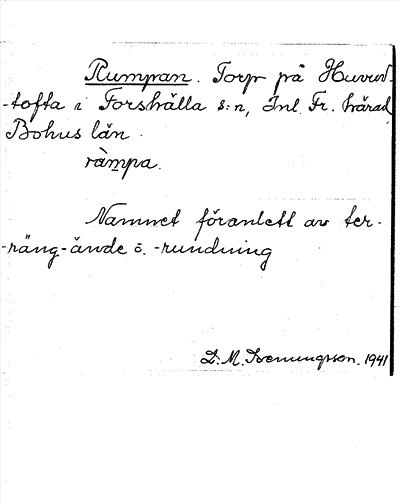 Rumpan. Torp på Huvud-
-tofta i Forshälla s:n, Inl. Fr. härad,
Bohus län.
ràmpa.
Namnet föranlett av ter-
-räng-ände o. -rundning
D. M. Svenungsson. 1941